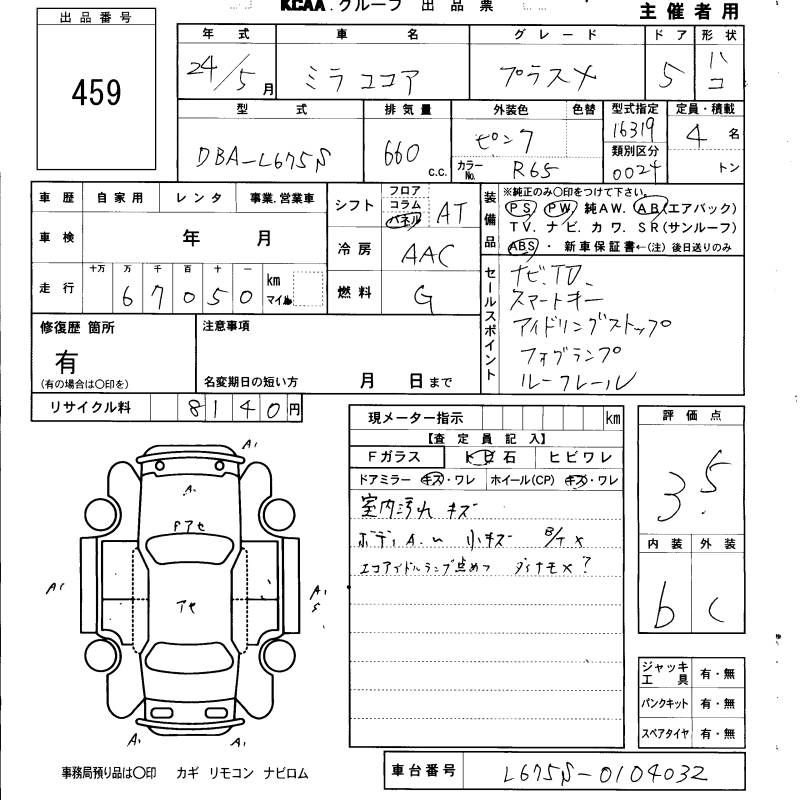 KCAA.グループ 出品票
主催者用
出品番号
459
年式 車名 グレード ドア 形状
24/5月 ミラココア プラスX 5 ハコ
型式 排気量 外装色 色替 型式指定 定員・積載
DBA-L675S 660 c.c. ピンク 16319 4名
カラーNo. R65 類別区分 0024 トン
車歴 自家用 レンタ 事業.営業車
シフト フロア コラム パネル AT
装備品
※純正のみ〇印をつけて下さい。
PS PW 純AW. AB(エアバック)
TV. ナビ. カワ. SR(サンルーフ)
ABS ・ 新車保証書←(注) 後日送りのみ
車検 年 月
冷房 AAC
走行 十万 万 千 百 十 一
67050 km マイル
燃料 G
セールスポイント
ナビ.TV.
スマートキー
アイドリングストップ
フォグランプ
ルーフレール
修復歴 箇所
有
(有の場合は〇印を)
注意事項
名変期日の短い方 月 日まで
リサイクル料 8140円
現メーター指示 km
【査定員記入】
Fガラス トビ石 ヒビワレ
ドアミラー キズ・ワレ ホイール(CP) キズ・ワレ
室内汚れ キズ
ボディA.〜 小キズ B/T X
エコアイドルランプ点めつ ダイナモX?
評価点
3.5
内装 外装
b C
ジャッキ工具 有・無
パンクキット 有・無
スペアタイヤ 有・無
A1
A1
A.
Pアセ
A1
アセ
A1
5
A1
A1
事務局預り品は〇印 カギ リモコン ナビロム
車台番号 L675S-0104032